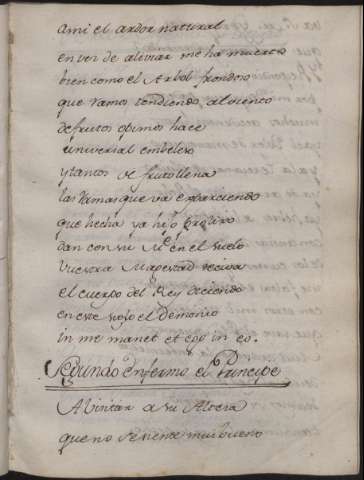 ami el ardor natural
en vez de alivar me ha muerto
bien como el Arbol frondoso
que ramos tendiendo, al viento
de frutos opimos hace
universal embeleso
y tantos de fruto llena
las Ramas que va esparciendo
que hecha ya hijo
dan con su en el suelo
Vuestra Magestad reciva
el cuerpo del Rey diciendo
en este siglo el Demonio
in me manet et ego in eo.
Segundo enfermo el Principe
A Visitar a su Alteza
que no se siente mui bueno